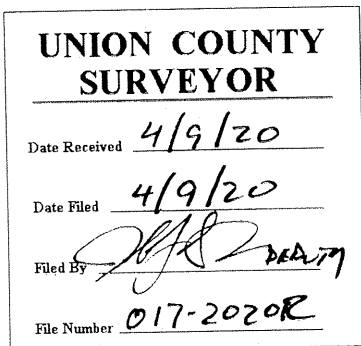 UNION COUNTY
SURVEYOR
Date Received 4/9/20
Date Filed 4/9/20
Filed By DEPUTY
File Number 017-2020R